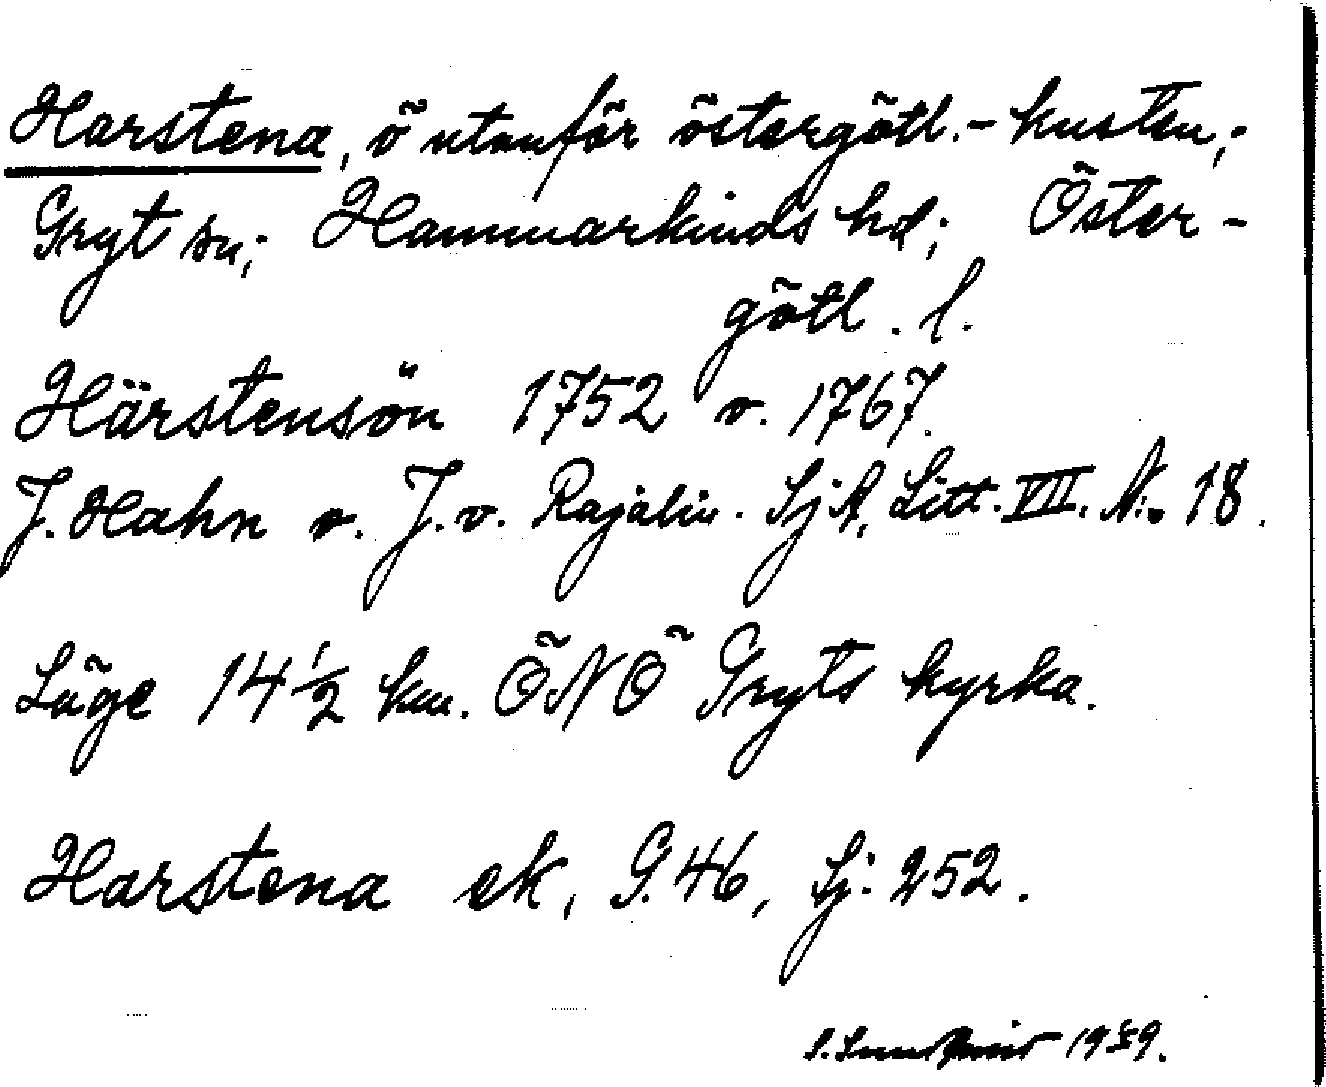 Harstena, ö utanför östergötl.- kusten;
Gryt sn; Hammarkinds hd; Öster-
götl. l.
Härstensön 1752 o. 1767.
J. Hahn o. J. v. Rajalin. SjA, Litt. VII. N:o 18.
Läge 14 1/2 km. ÖNÖ Gryts kyrka.
Harstena ek, G. 46, Sj: 252.
1959.